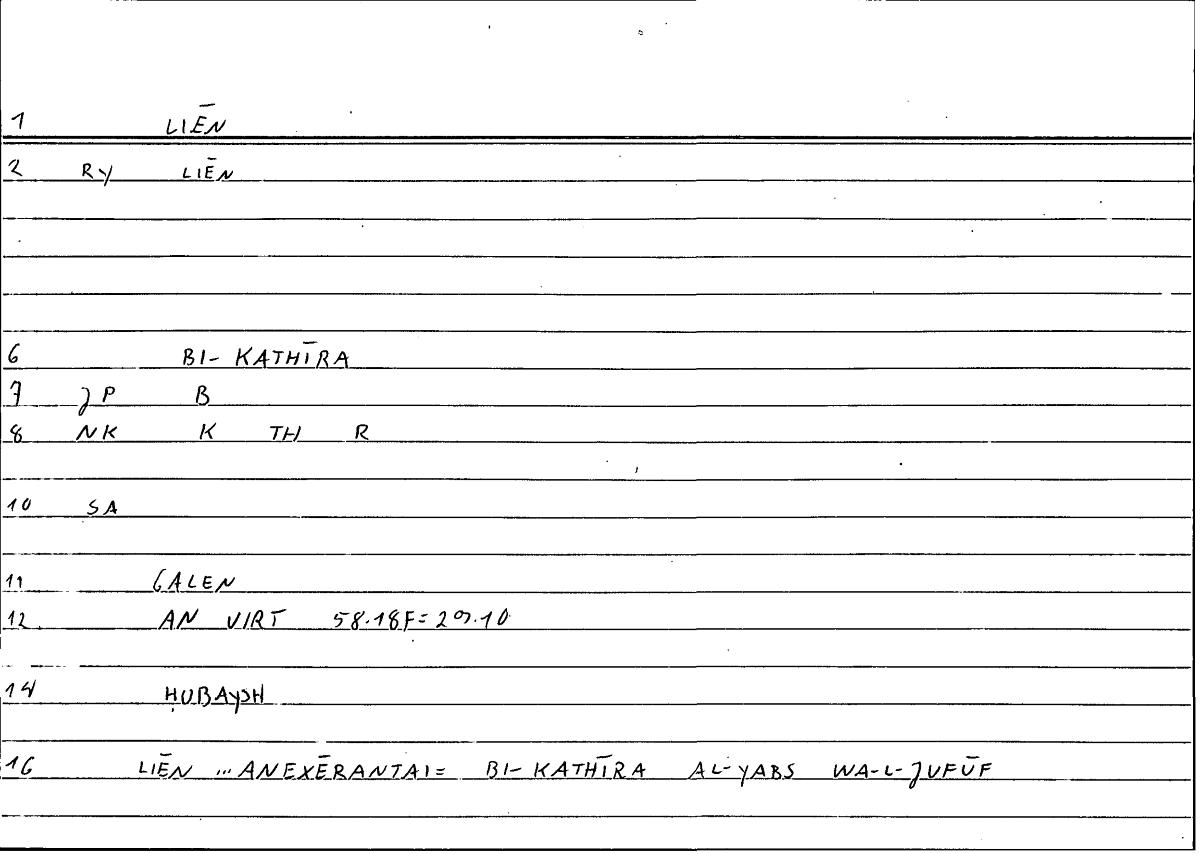 1 LIĒN
2 RY LIĒN
6 BI- KATHĪRA
7 JP B
8 NK K TH R
10 SA
11 GALEN
12. AN VIRT 58.18F=29.10
14 ḤUBAYSH
16 LIĒN ... ANEXĒRANTAI= BI- KATHĪRA AL-YABS WA-L-JUFŪF